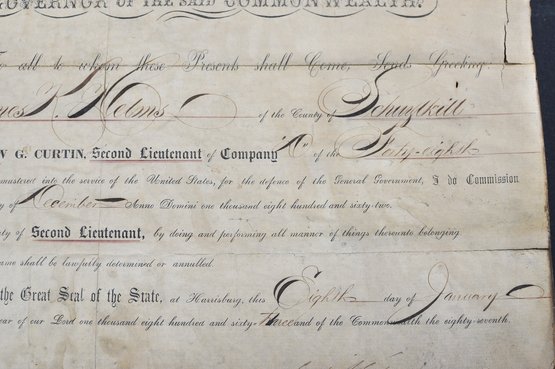 GOVERNOR OF THE SAID COMMONWEALTH.
To all to whom these Presents shall Come, Sends Greeting:
R. Helms of the County of Schuylkill
G. CURTIN, Second Lieutenant of Company of the Forty-eighth
mustered into the service of the United States, for the defence of the General Government, I do Commission
of December Anno Domini one thousand eight hundred and sixty-two.
of Second Lieutenant, by doing and performing all manner of things thereunto belonging
same shall be lawfully determined or annulled.
the Great Seal of the State, at Harrisburg, this Eighth day of January
year of our Lord one thousand eight hundred and sixty-three and of the Commonwealth the eighty-seventh.